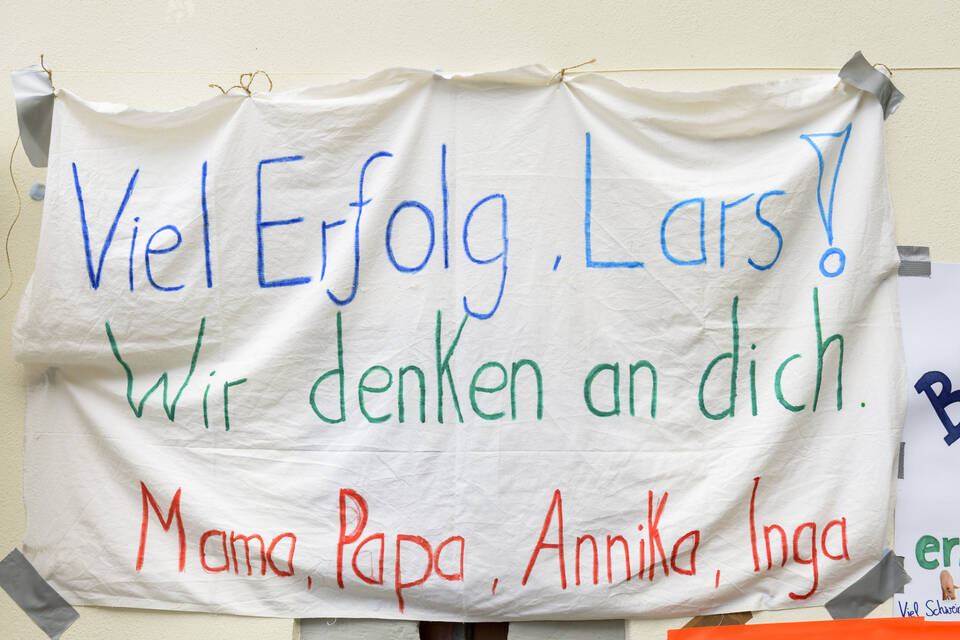 Viel Erfolg, Lars!
Wir denken an dich.
Mama, Papa, Annika, Inga
B
er
Viel